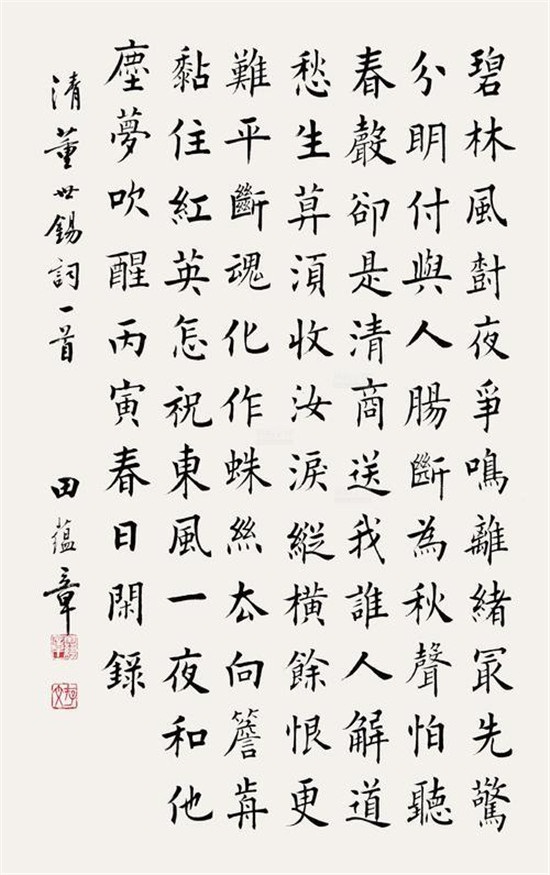 碧林風尌夜爭鳴離緒冣先驚
分明付與人腸斷為秋聲怕聽
春聲卻是清商送我誰人解道
愁生莫須收汝淚縱橫餘恨更
難平斷魂化作蛛絲厺向簷歬
黏住紅英怎祝東風一夜和他
塵夢吹醒丙寅春日閑錄
清董世錫詞一首 田蘊章